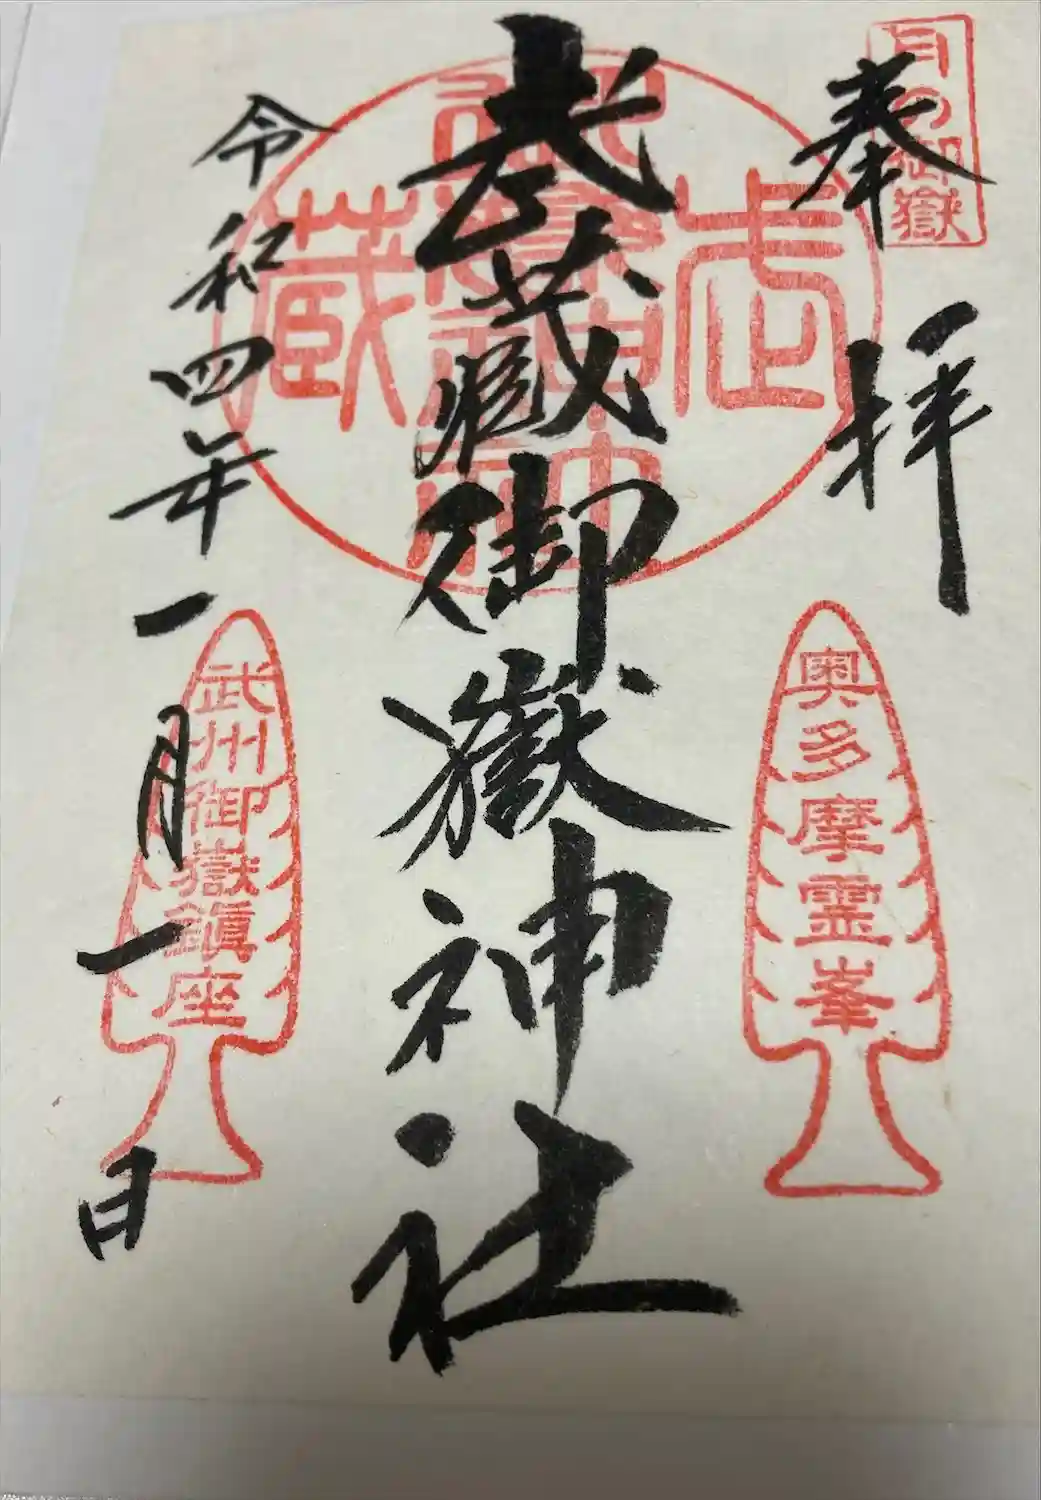 月の御嶽
奉拝
奥多摩霊峯
武蔵御嶽神社
武蔵御嶽神社
令和四年一月一日
武州御嶽鎮座